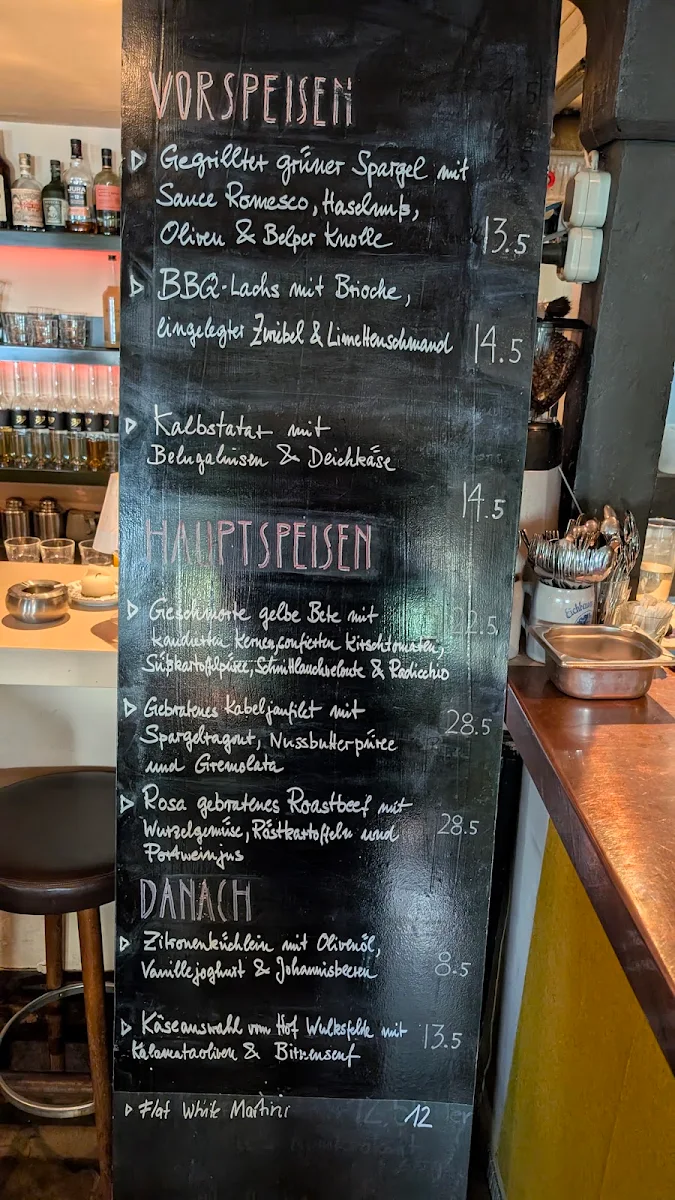 VORSPEISEN
Gegrillter grüner Spargel mit
Sauce Romesco, Haselnuß,
Oliven & Belper Knolle 13.5
BBQ-Lachs mit Brioche,
eingelegter Zwiebel & Limettenschmand 14.5
Kalbstatar mit
Belugalinsen & Deichkäse
14.5
HAUPTSPEISEN
Geschmorte gelbe Bete mit 22.5
kandierten Kernen, confierten Kirschtomaten,
Süßkartoffelpüree, Schnittlauchveloute & Radicchio
Gebratenes Kabeljaufilet mit 28.5
Spargelragout, Nussbutterpüree
und Gremolata
Rosa gebratenes Roastbeef mit
Wurzelgemüse, Röstkartoffeln und 28.5
Portweinjus
DANACH
Zitronenküchlein mit Olivenöl,
Vanillejoghurt & Johannisbeeren 8.5
Käseauswahl vom Hof Wulksfelde mit 13.5
Kalamataoliven & Birnensenf
Flat White Martini 12
JURA